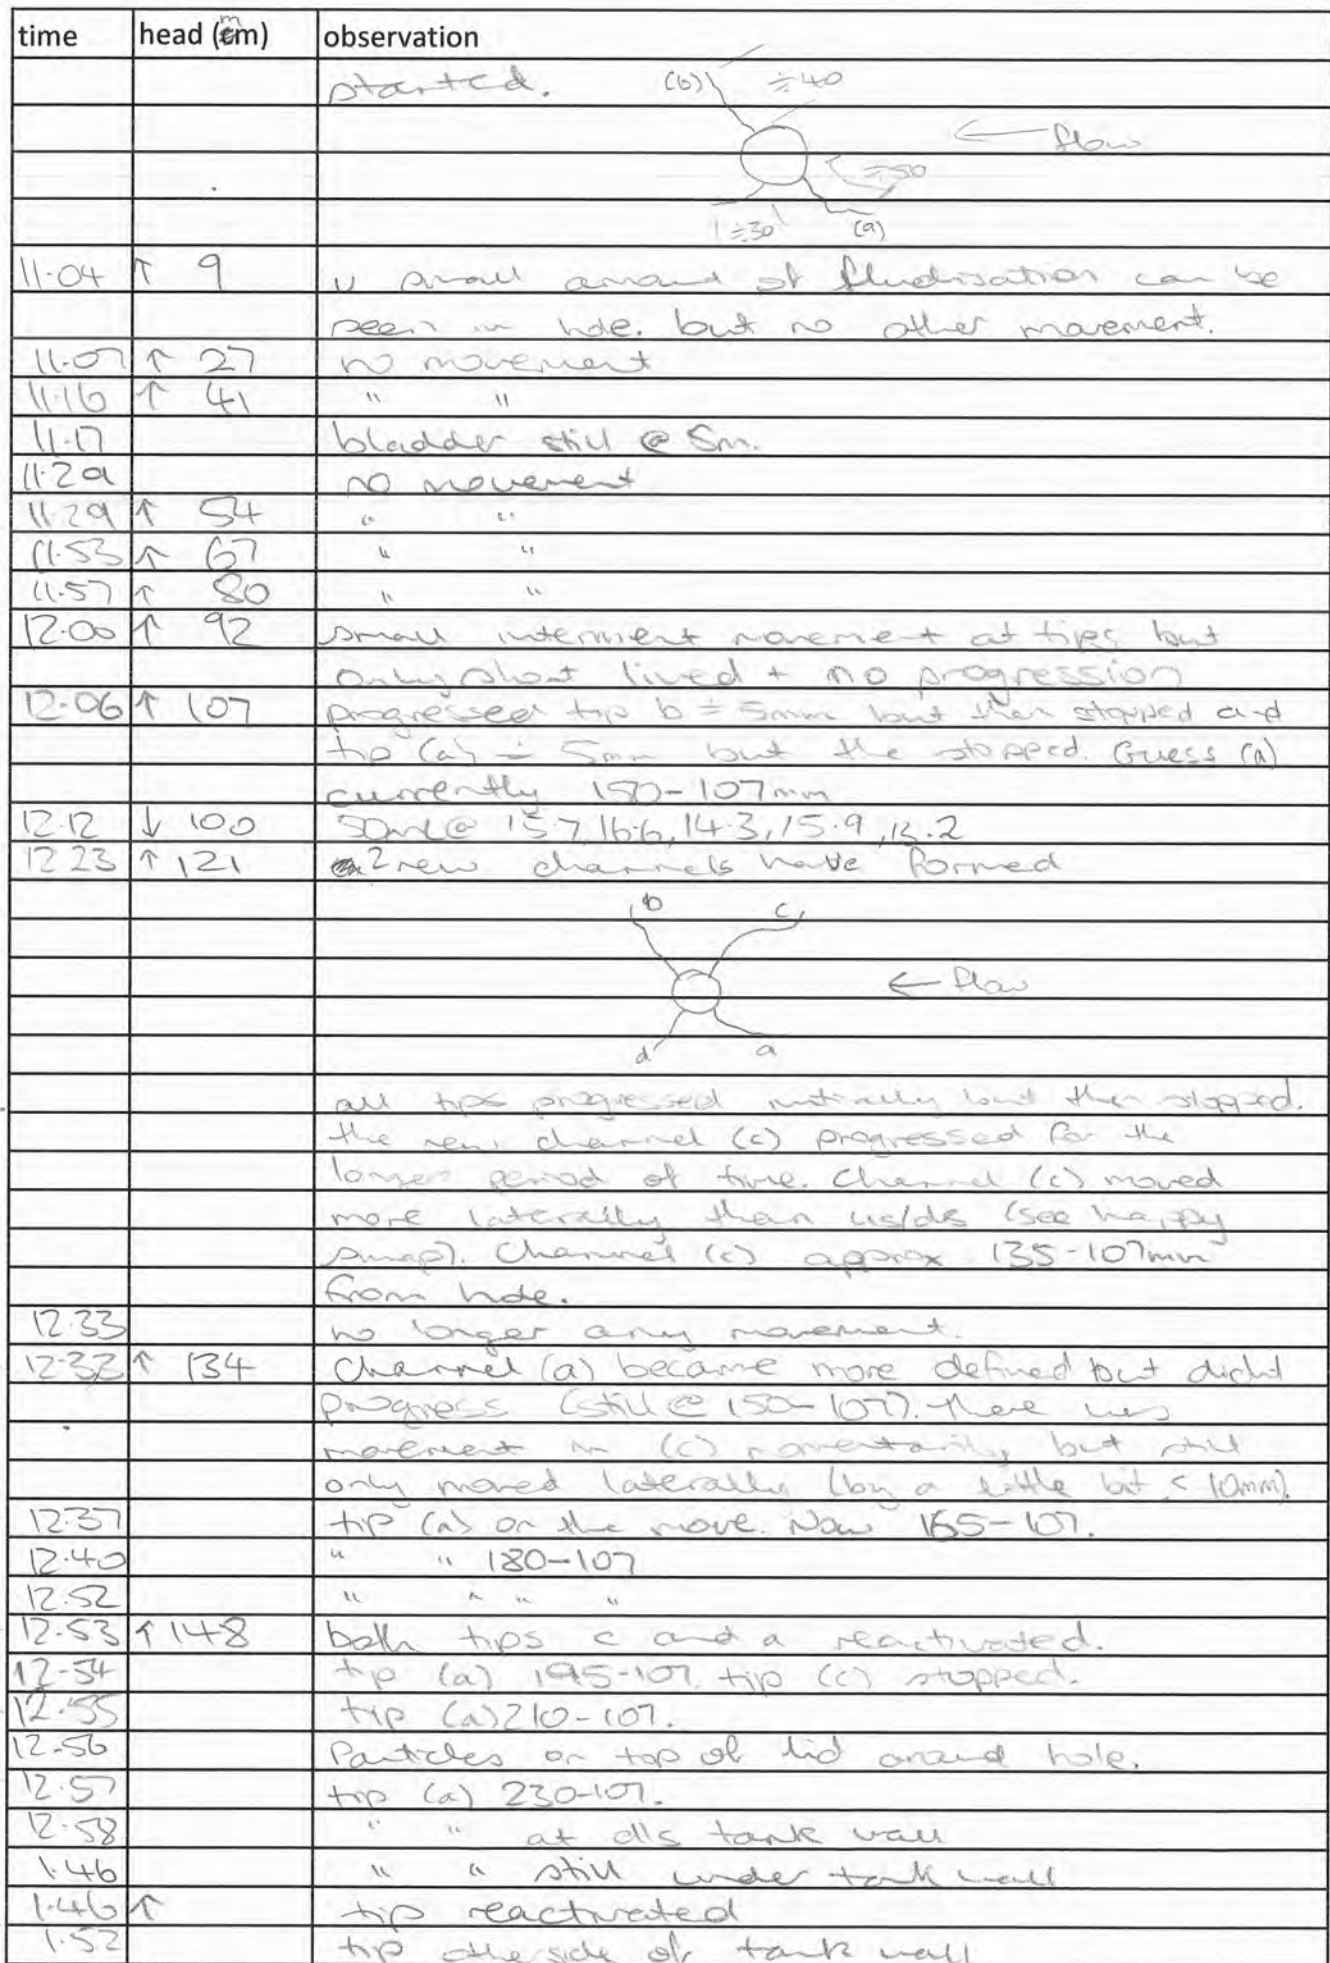 time head (mm) observation
started. (b) ≑40
← flow
≑50
≑30 (a)
11.04 ↑ 9 v small amount of fluidisation can be
seen in hole. but no other movement.
11.07 ↑ 27 no movement
11.16 ↑ 41 " "
11.17 bladder still @ 5m.
11.29 no movement
11.29 ↑ 54 " "
11.53 ↑ 67 " "
11.57 ↑ 80 " "
12.00 ↑ 92 small intermient movement at tips but
only short lived + no progression
12.06 ↑ 107 progressed tip b ≑ 5mm but then stopped and
tip (a) ≑ 5mm but the stopped. Guess (a)
currently 150-107mm
12.12 ↓ 100 50mL @ 15.7, 16.6, 14.3, 15.9,
12.23 ↑ 121 2 new channels have formed
b c
← flow
d a
all tips progressed but then stopped.
the new channel (c) progressed for the
longer period of time. Channel (c) moved
more laterally than us/ds (see happy
snap). Channel (c) approx 135-107mm
from hole.
12.33 no longer any movement.
12.33 ↑ 134 Channel (a) became more defined but didnt
progress (still @ 150-107). There was
movement in (c) momentarily but still
only moved laterally (by a little bit < 10mm).
12.37 tip (a) on the move. Now 165-107.
12.40 " " 180-107
12.52 " " " "
12.53 ↑ 148 both tips c and a reactivated.
12.54 tip (a) 195-107. tip (c) stopped.
12.55 tip (a) 210-107.
12.56 Particles on top of lid around hole.
12.57 tip (a) 230-107.
12.58 " " at d/s tank wall
1.46 " " still under tank wall
1.46 ↑ tip reactivated
1.52 tip otherside of tank wall